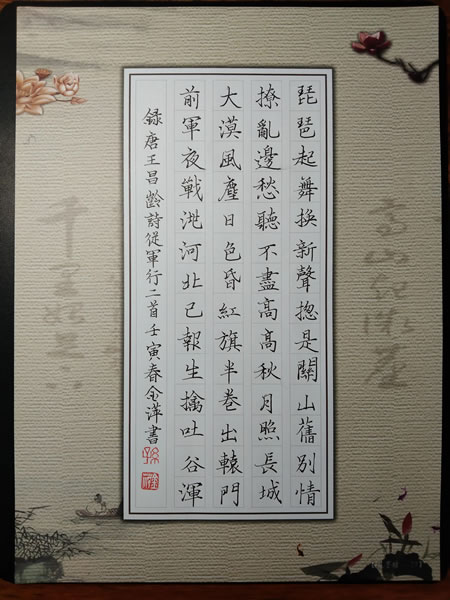 琵琶起舞換新聲揔是關山舊別情
撩亂邊愁聽不盡高高秋月照長城
大漠風塵日色昏紅旗半卷出轅門
前軍夜戰洮河北已報生擒吐谷渾
錄唐王昌齡詩從軍行二首壬寅春金萍書